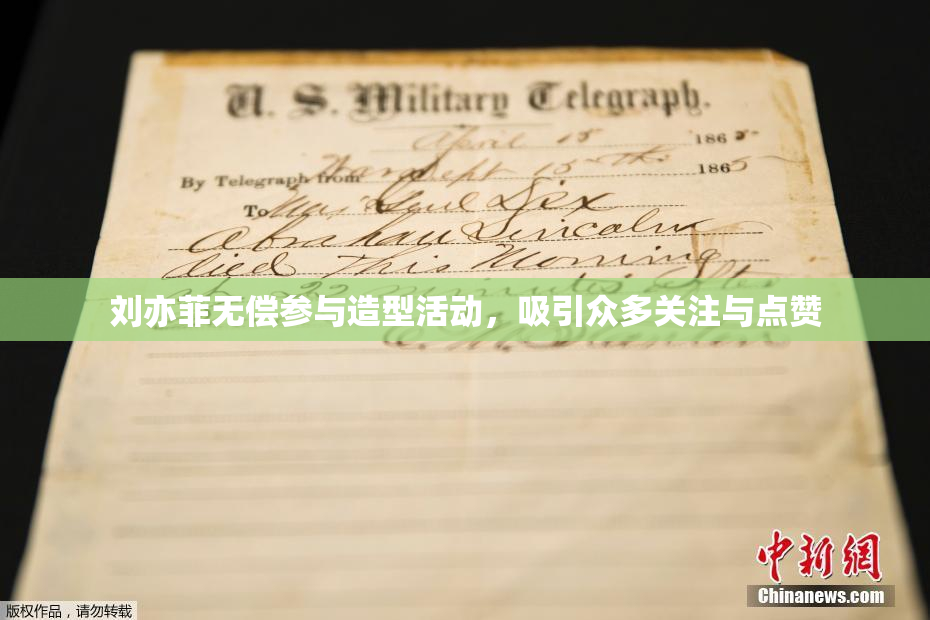 U. S. Military Telegraph.
April 15 1865
By Telegraph from War Dept 15th 1865
To Maj Genl Dix
Abraham Lincoln
died this Morning
at 22 minutes after
刘亦菲无偿参与造型活动，吸引众多关注与点赞
E. M. Stanton
中新网
Chinanews.com
版权作品，请勿转载